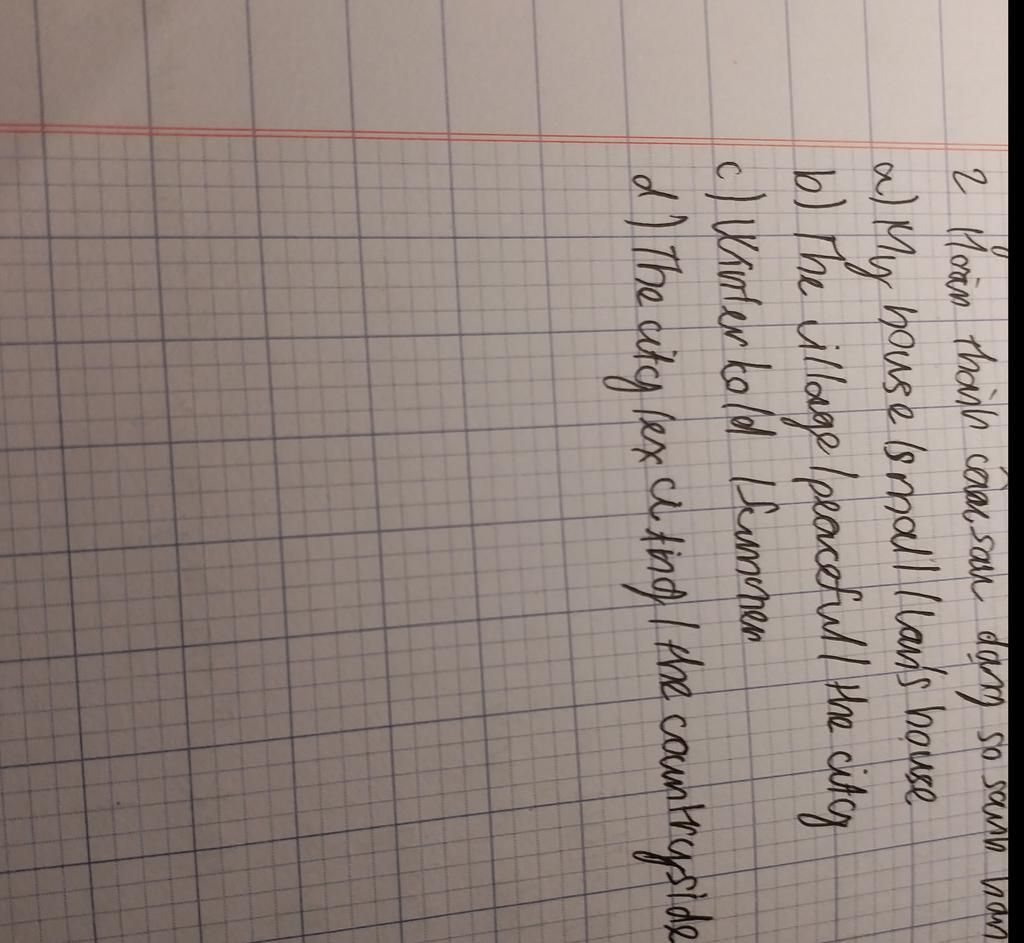 2 Hoàn thành câu sau dạng so sánh hơn
a) My house / small / Lan's house
b) The village / peaceful / the city
c) Winter cold / Summer
d) The city / exciting / the countryside